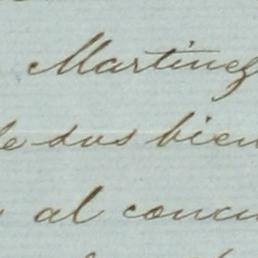 Martinez
de sus bien
al concu